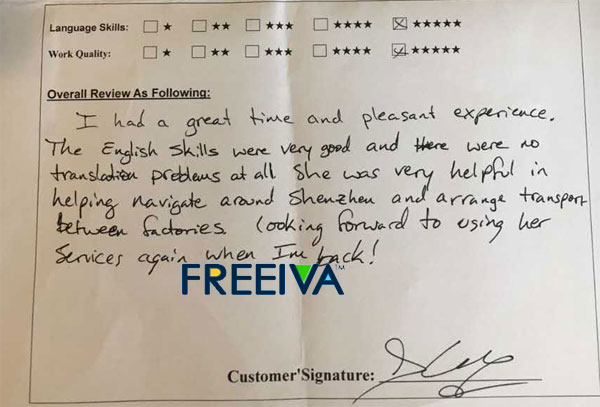 Language Skills: ☐ ★ ☐ ★★ ☐ ★★★ ☐ ★★★★ ☒ ★★★★★
Work Quality: ☐ ★ ☐ ★★ ☐ ★★★ ☐ ★★★★ ☑ ★★★★★
Overall Review As Following:
I had a great time and pleasant experience.
The English Skills were very good and there were no
translation problems at all. She was very helpful in
helping navigate around Shenzhen and arrange transport
between factories Looking forward to using her
services again when I'm back!
FREEIVA™
Customer'Signature: